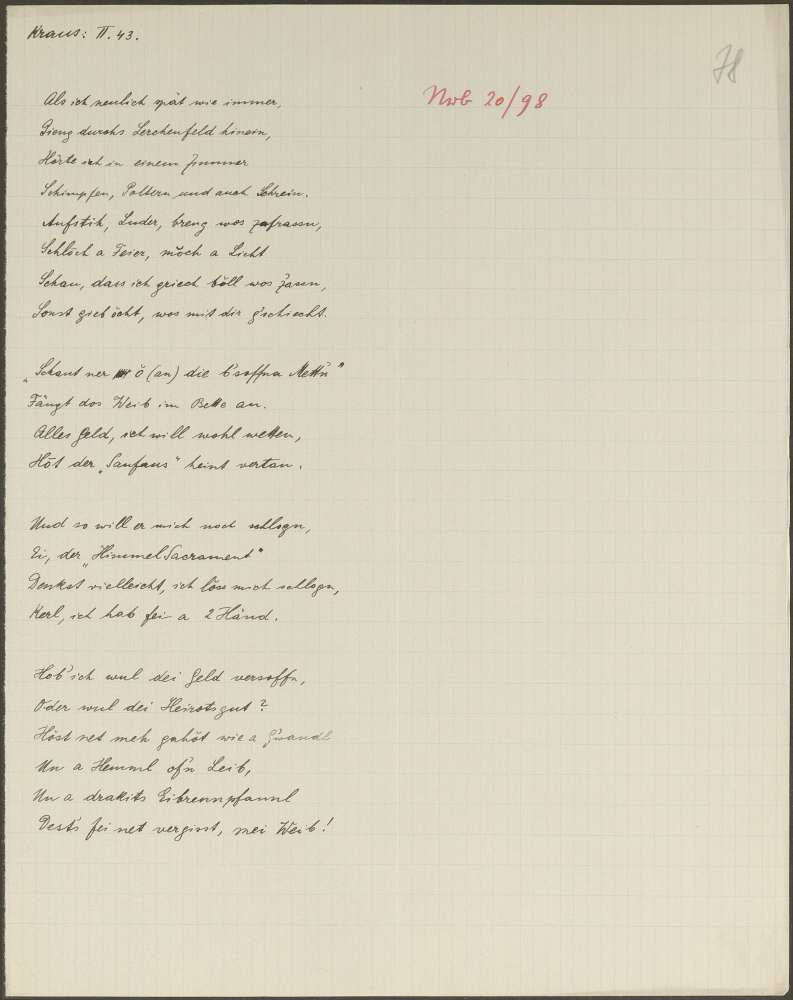 Kraus: II. 43.
78
Nrb 20/98
Als ich neulich spät wie immer,
Gieng durchs Lerchenfeld hinein,
Hörte ich in einem Zimmer
Schimpfen, Poltern und auch Schrein.
Aufstih, Luder, breng wos zafrassn,
Schlöch a Feier, möch a Licht
Schau, dass ich griech böll wos
Sonst gieb öcht, wos mit dir g'schiecht.
„Schaut ner ö (an) die b'soffna Mettn"
Fängt das Weib im Bette an.
Alles Geld, ich will wohl wetten,
Höt der „Saufaus" heint vertan.
Und so will er mich noch schlogn,
Ei, der „Himmel Sacrament"
Denkst vielleicht, ich löse mich schlogn,
Kerl, ich hab fei a 2 Händ.
Hob' ich wul dei Geld versoffn,
Oder wul dei Heirotsgut?
Höst net meh gahöt wie a G'wandl
Un a Hemml of'n Leib,
Un a drakits Eibrennpfannl
Dest's fei net vergisst, mei Weib!